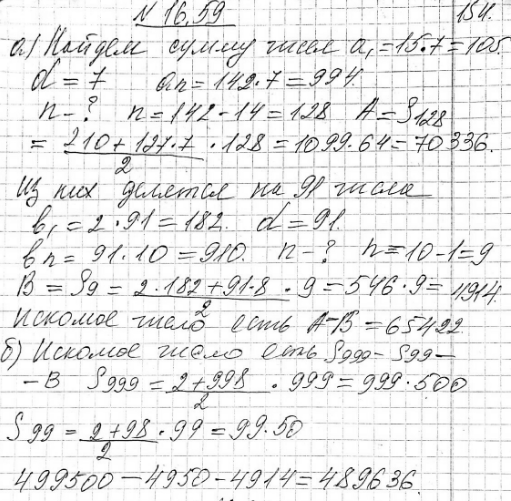 N 16.59 154.
а) Найдем сумму чисел a₁=15·7=105
d=7 an=142·7=994.
n-? n=142-14=128 A=S₁₂₈
= (210+127·7)/2 · 128=1099·64=70336.
Из них делятся на 91 числа
b₁=2·91=182. d=91.
bn=91·10=910. n-? n=10-1=9
B=S₉= (2·182+91·8)/2 · 9=546·9=4914.
Искомое число есть A-B=65422
б) Искомое число есть S₉₉₉-S₉₉-
-B S₉₉₉= (2+998)/2 · 999=999·500
S₉₉= (2+98)/2 · 99=99·50
499500-4950-4914=489636.